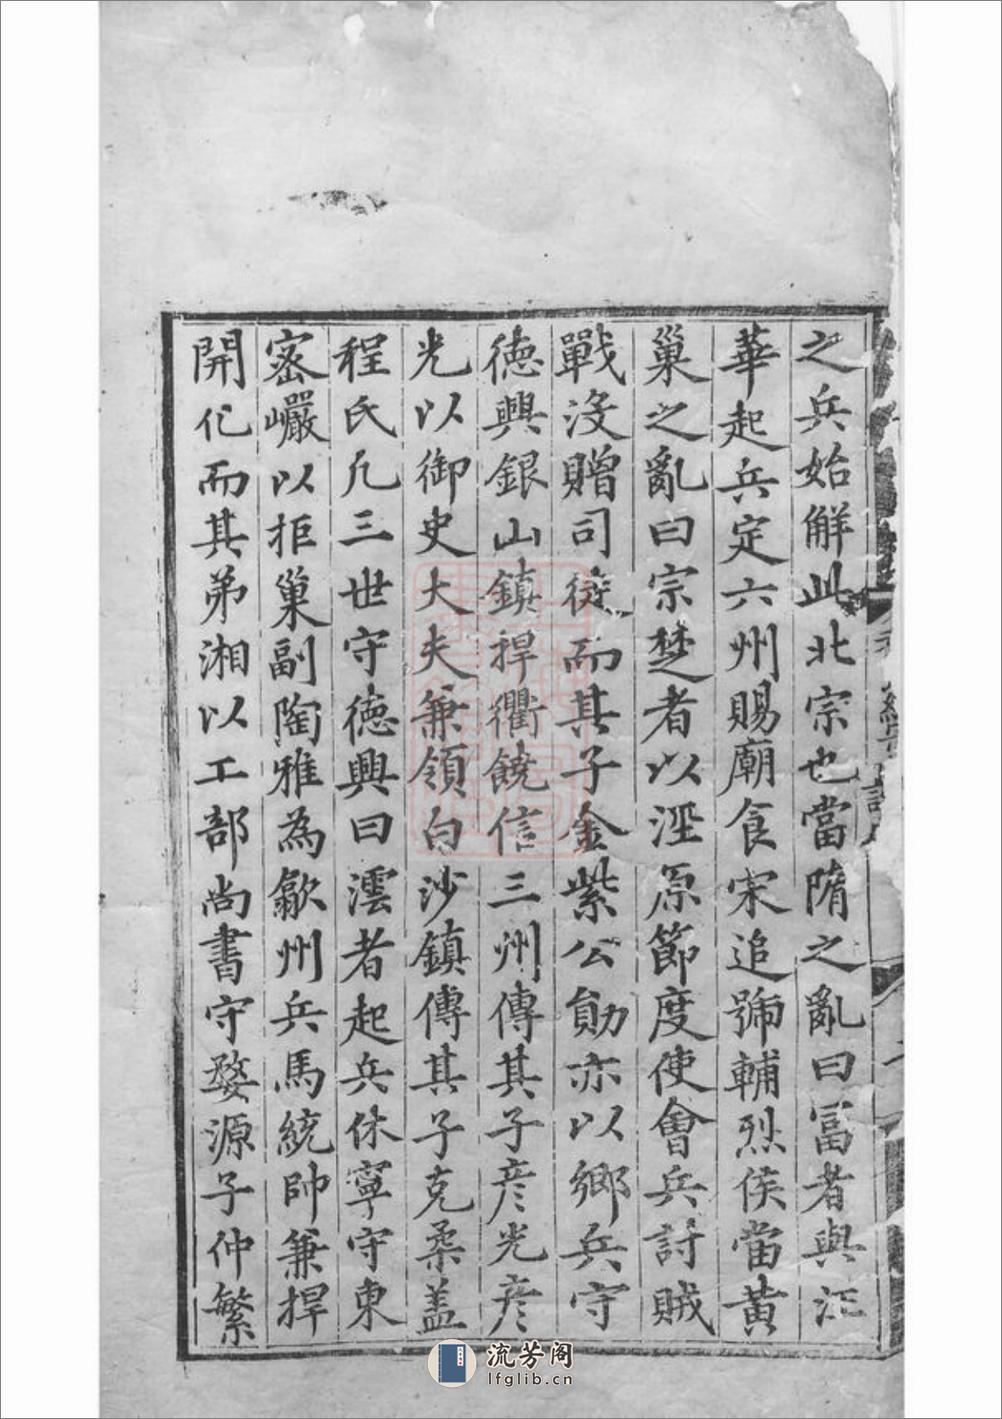 之兵始解此北宗也當隋之亂曰冨者與汪
華起兵定六州賜廟食宋追號輔烈侯當黃
巢之亂曰宗楚者以涇原節度使會兵討賊
戰沒贈司徒而其子金紫公勛亦以鄉兵守
德興銀山鎮捍衢饒信三州傳其子彥光彥
光以御史大夫兼領白沙鎮傳其子克柔蓋
程氏凡三世守德興曰澐者起兵休寧守東
密巖以拒巢副陶雅為歙州兵馬統帥兼捍
開化而其弟湘以工部尚書守婺源子仲繁
流芳阁
lfglib.cn